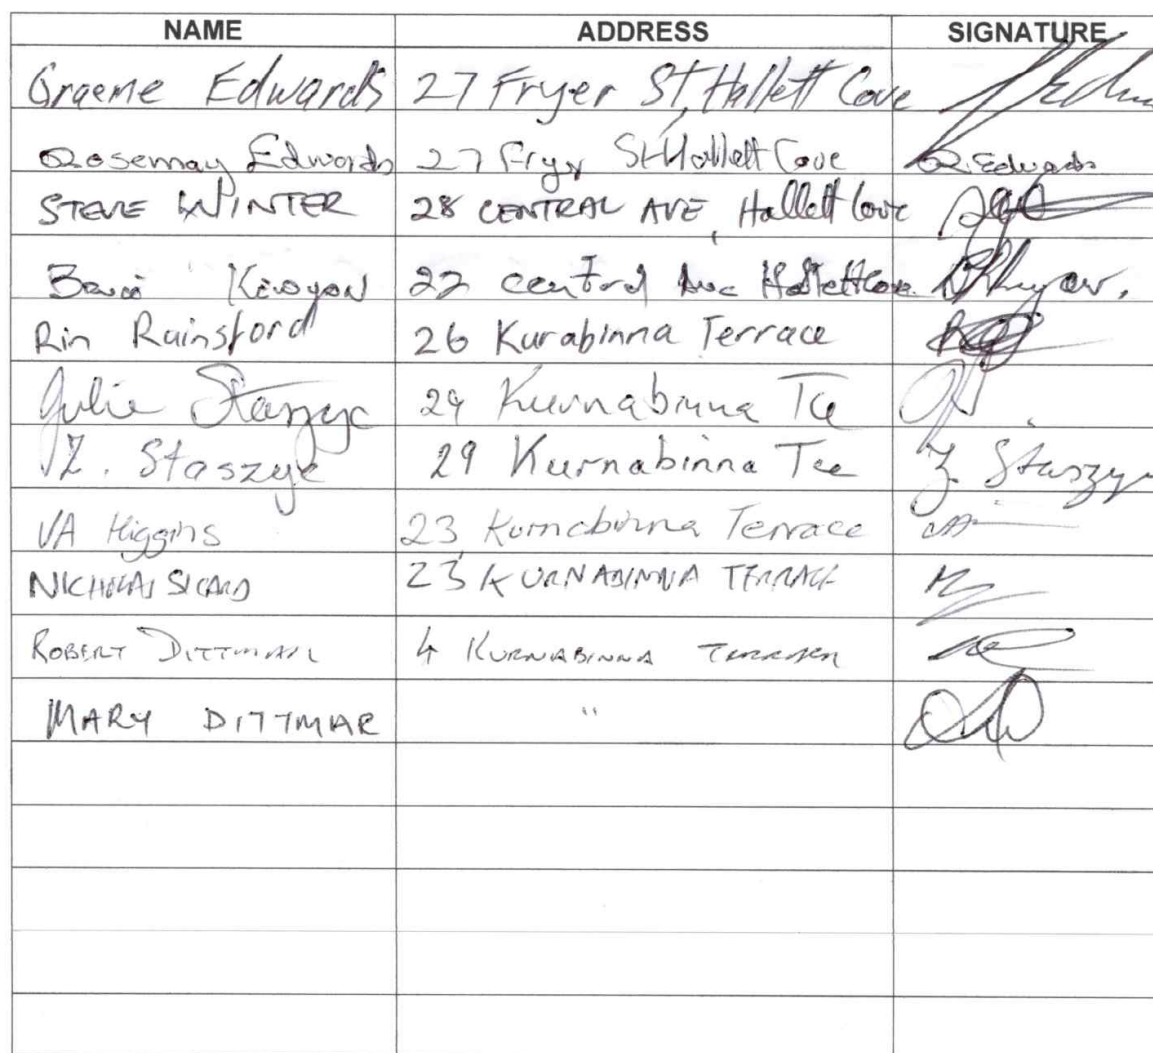 NAME ADDRESS SIGNATURE
Graeme Edwards 27 Fryer St, Hallett Cove
Rosemay Edwards 27 Fryer St Hallett Cove R. Edwards
STEVE WINTER 28 CENTRAL AVE, Hallett Cove
Kenyon 22 Central Ave Hallett Cove
Rin Rainsford 26 Kurabinna Terrace
Julie Staszyc 29 Kurnabinna Tce
Z. Staszyc 29 Kurnabinna Tce Z Staszyc
VA Higgins 23 Kurnabinna Terrace
NICHOLAS SICARD 23 KURNABINNA TERRACE
ROBERT DITTMAR 4 KURNABINNA TERRACE
MARY DITTMAR "